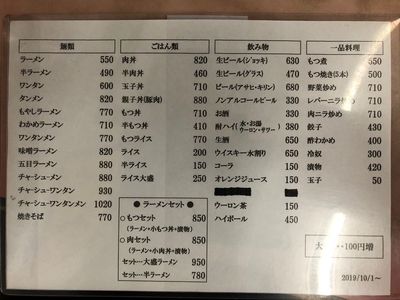 麺類
ラーメン 550
半ラーメン 490
ワンタン 600
タンメン 820
もやしラーメン 770
わかめラーメン 710
ワンタンメン 770
味噌ラーメン 820
五目ラーメン 880
チャーシューメン 880
チャーシューワンタン 930
チャーシューワンタンメン 1020
焼きそば 770
ごはん類
肉丼 820
半肉丼 460
玉子丼 710
銀子丼(豚肉) 880
もつ丼 710
半もつ丼 410
ライス 200
半ライス 150
ライス大盛 250
[ラーメンセット]
○もつセット 850
(ラーメン・小もつ丼・漬物)
○肉セット 850
(ラーメン・小肉丼・漬物)
セット…大盛ラーメン 950
セット…半ラーメン 780
飲み物
生ビール(ジョッキ) 630
生ビール(グラス) 470
ビール(アサヒ・キリン) 680
ノンアルコールビール 330
お酒 330
酎ハイ(水・お湯 ウーロン・サワー) 380
生酒 650
ウイスキー水割り 650
コーラ 150
オレンジジュース 150
150
ウーロン茶 150
ハイボール 450
一品料理
もつ煮 550
もつ焼き(5本) 500
野菜炒め 710
レバーニラ炒め 710
肉ニラ炒め 710
餃子 430
酢わかめ 400
冷奴 300
漬物 420
玉子 50
大 ・・100円増
2019/10/1～